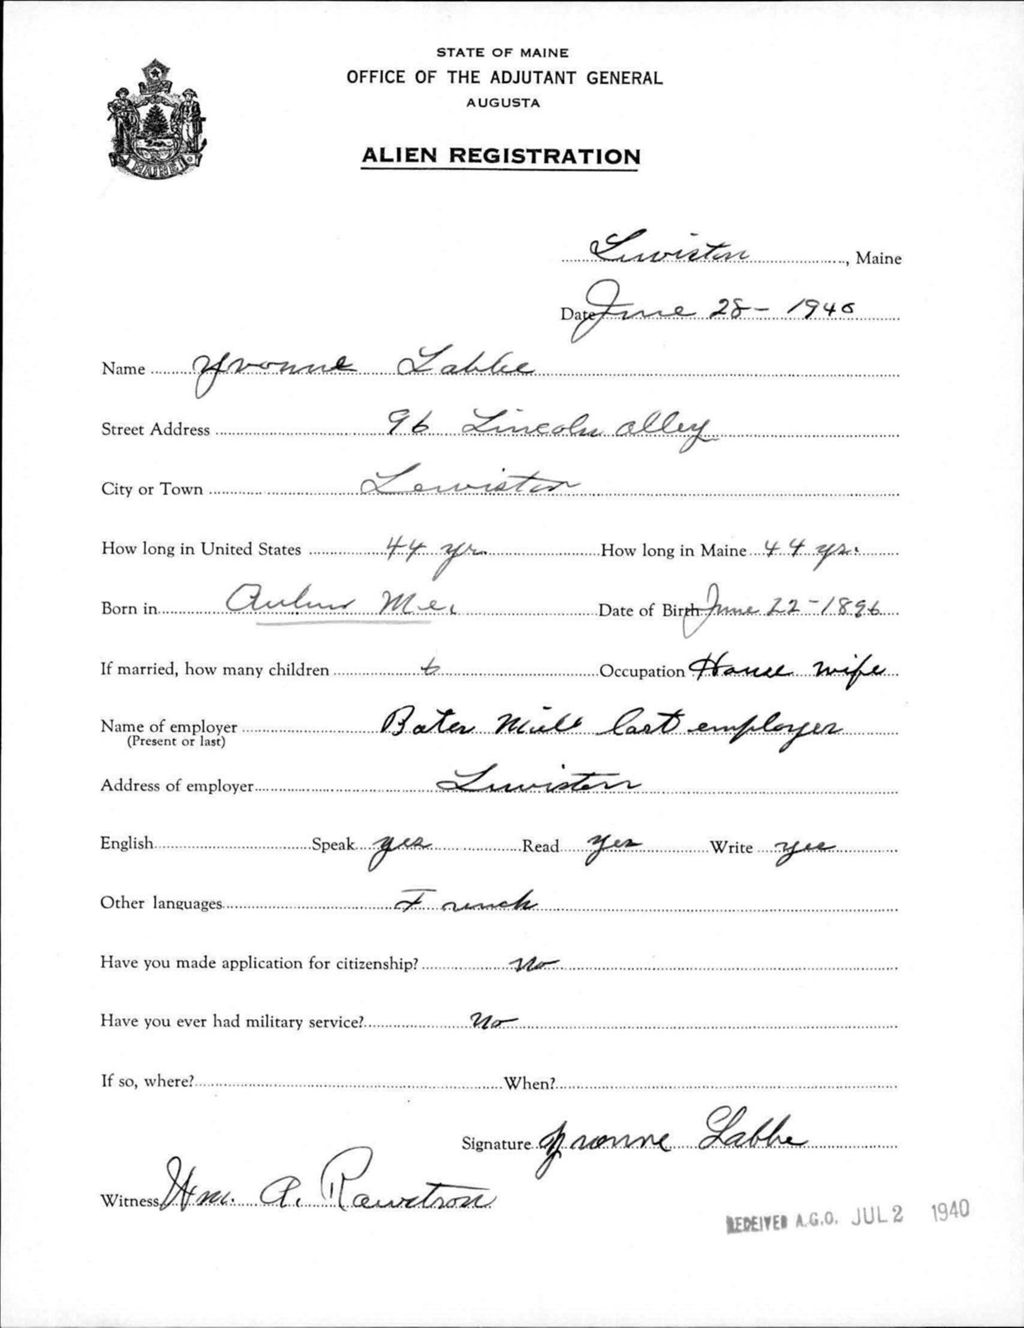 STATE OF MAINE
OFFICE OF THE ADJUTANT GENERAL
AUGUSTA
ALIEN REGISTRATION
MAINE
Lewiston, Maine
Date June 28 - 1940
Name Yvonne Labbe
Street Address 96 Lincoln alley
City or Town Lewiston
How long in United States 44 yr. How long in Maine 44 yr.
Born in Auburn Me. Date of Birth June 22 - 1896
If married, how many children 6 Occupation House wife
Name of employer Bates Mill last employer
(Present or last)
Address of employer Lewiston
English Speak yes Read yes Write yes
Other languages French
Have you made application for citizenship? No
Have you ever had military service? No
If so, where? When?
Signature Yvonne Labbe
Witness Wm. A. Rawstron
RECEIVED A.G.O. JUL 2 1940